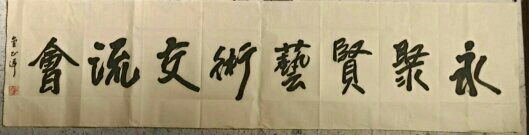 永聚賢藝術交流會